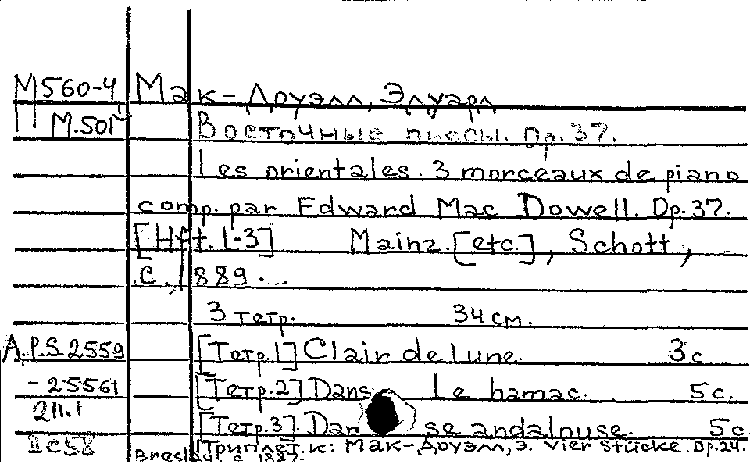 М560-4 Мак-Доуэлл, Эдуард
П М.501 Восточные пьесы. Op.37.
Les orientales. 3 morceaux de piano
comp. par Edward Mac Dowell. Op.37.
[Hft. 1-3] Mainz [etc.], Schott,
c. 1889.
3 тетр. 34 см.
A.P.S. 2559 [Тетр.1] Clair de lune. 3 с.
-25561 [Тетр.2] Dans Le hamac. 5 с.
211.1 [Тетр.3] Dan se andalouse. 5 с.
Приплет. к: Мак-Доуэлл, Э. Vier Stücke. Op.24.